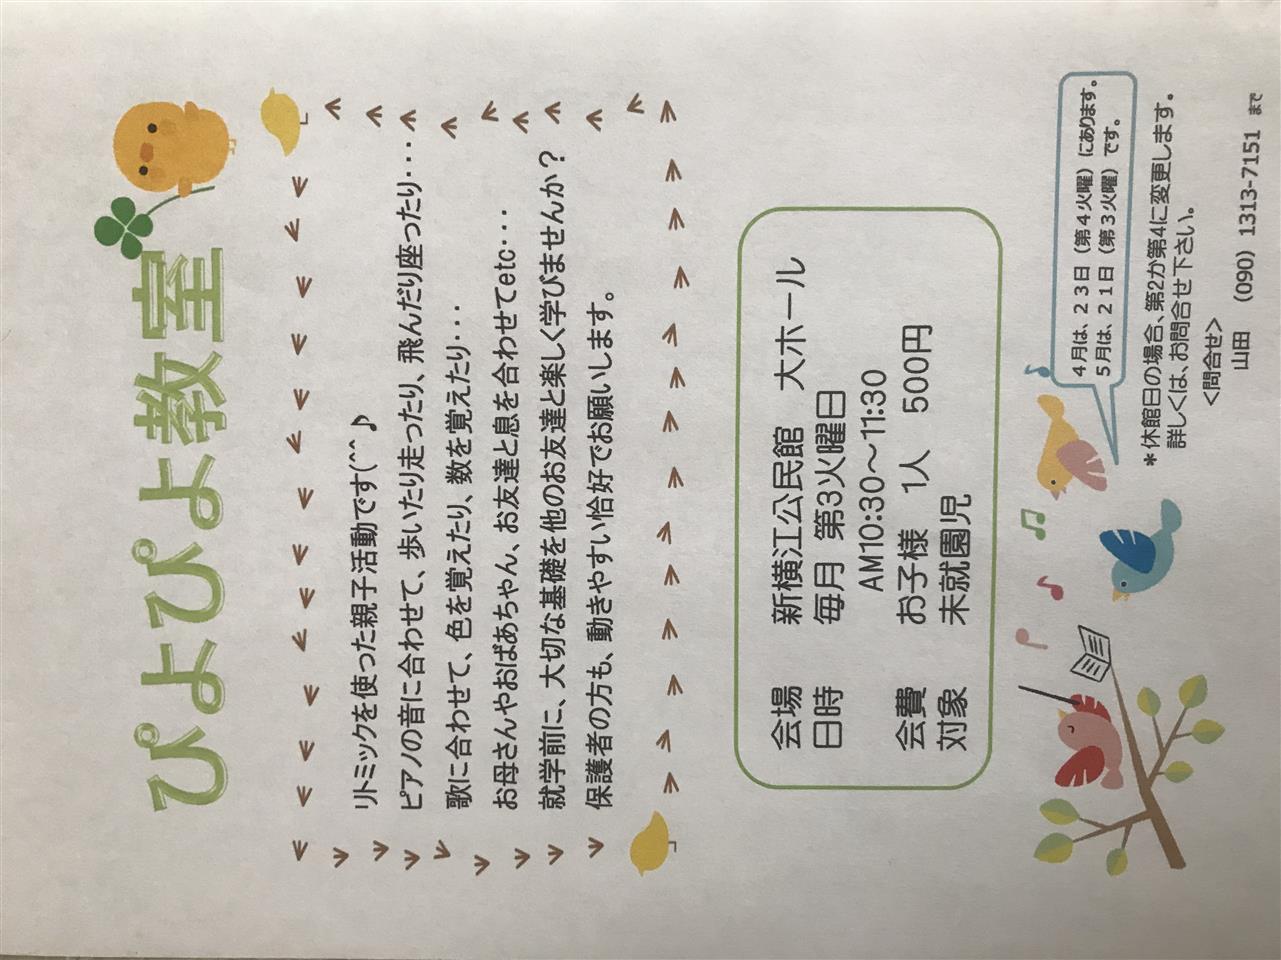 ぴよぴよ教室
リトミックを使った親子活動です(^^♪
ピアノの音に合わせて、歩いたり走ったり、飛んだり座ったり・・・
歌に合わせて、色を覚えたり、数を覚えたり・・・
お母さんやおばあちゃん、お友達と息を合わせてetc・・・
就学前に、大切な基礎を他のお友達と楽しく学びませんか？
保護者の方も、動きやすい恰好でお願いします。
会場 新横江公民館 大ホール
日時 毎月 第3火曜日
AM10:30～11:30
会費 お子様 1人 500円
対象 未就園児
４月は、２３日（第４火曜）にあります。
５月は、２１日（第３火曜）です。
＊休館日の場合、第2か第4に変更します。
詳しくは、お問合せ下さい。
＜問合せ＞
山田 （090）1313-7151 まで